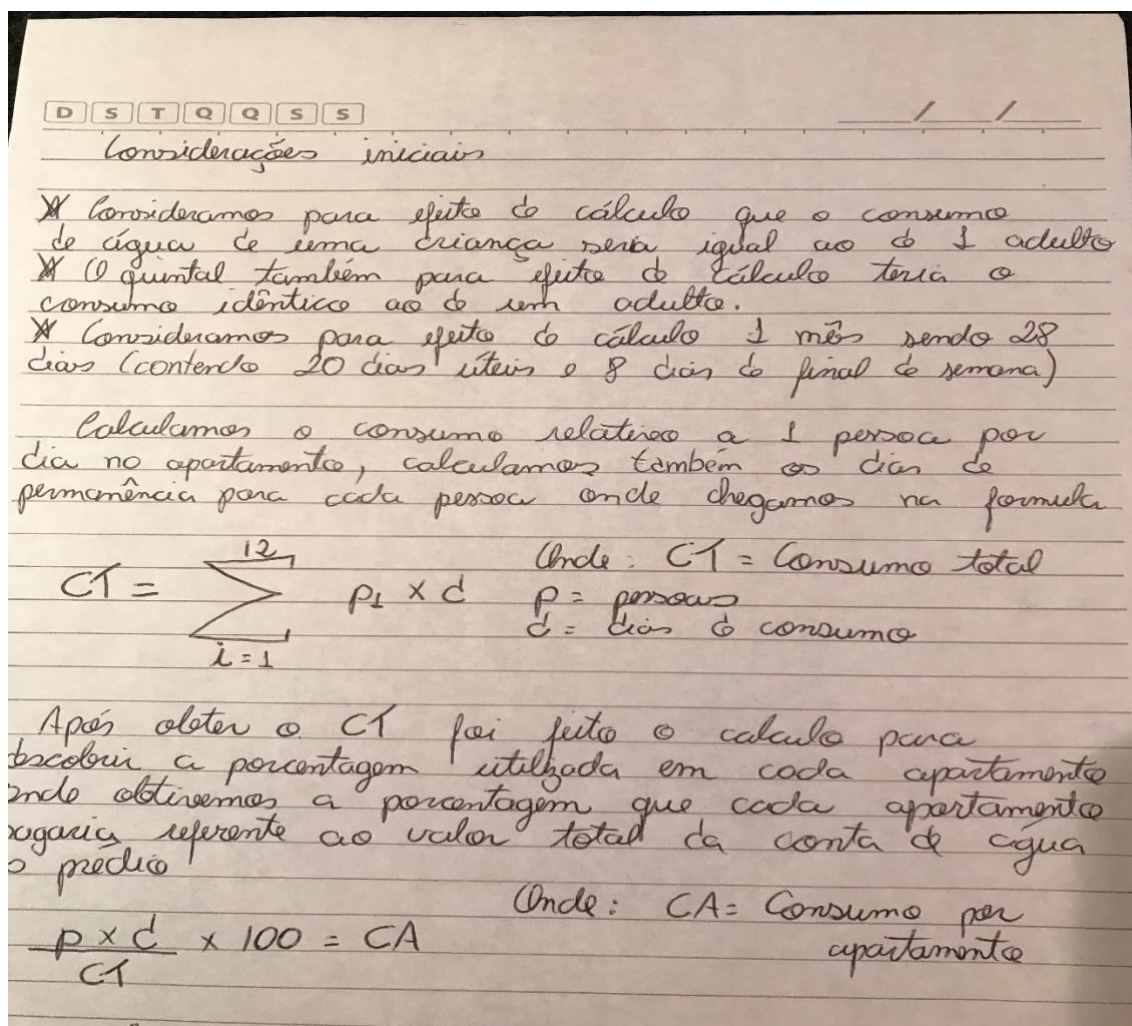 D S T Q Q S S / /
Considerações iniciais
* Consideramos para efeito de cálculo que o consumo
de água de uma criança seria igual ao de 1 adulto
* O quintal também para efeito de cálculo teria o
consumo idêntico ao de um adulto.
* Consideramos para efeito de cálculo 1 mês sendo 28
dias (contendo 20 dias úteis e 8 dias de final de semana)
Calculamos o consumo relativo a 1 pessoa por
dia no apartamento, calculamos também os dias de
permanência para cada pessoa onde chegamos na formula
12
CT = ∑ p₁ × d
i = 1
Onde: CT = Consumo total
p = pessoas
d = dias de consumo
Após obter o CT foi feito o calculo para
escobrir a porcentagem utilizada em cada apartamento
onde obtivemos a porcentagem que cada apartamento
pagaria referente ao valor total da conta de água
o prédio
p × d / CT × 100 = CA
Onde: CA = Consumo por
apartamento